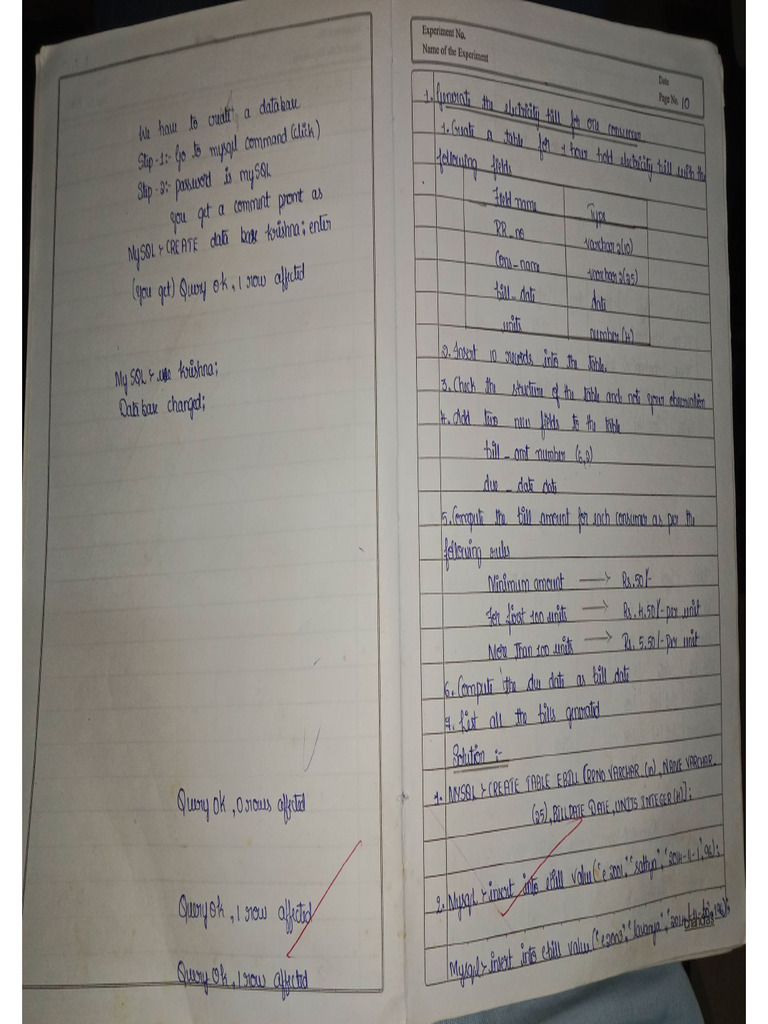 We have to create a database
Step-1:- Go to mysql command (click)
Step-2:- password is mySQL
you get a comment promt as
MySQL> CREATE data base krishna; enter
(you get) Query ok, 1 row affected
My SQL> use krishna;
Data base changed;
Query ok, 0 rows affected
Query ok, 1 row affected
Query ok, 1 row affected
Experiment No.
Name of the Experiment
Date
Page No. 10
1. Generate the electricity bill for one consumer
1. Create a table for house hold electricity bill with the
following fields
Field name Type
RR_no varchar2(10)
Cons_name varchar2(25)
bill_date date
units number(4)
2. Insert 10 records into the table.
3. Check the structure of the table and note your observation
4. Add two new fields to the table
bill_amt number (6,2)
due_date date
5. Compute the bill amount for each consumer as per the
following rules
Minimum amount → Rs.50/-
For first 100 units → Rs. 4.50/- per unit
More Than 100 units → Rs. 5.50/- per unit
6. Compute the due date as bill date
7. List all the bills generated
Solution :-
1. MYSQL> CREATE TABLE EBILL (RRNO VARCHAR (10), NAME VARCHAR
(25), BILLDATE DATE, UNITS INTEGER(4));
2. Mysql> insert into ebill value("e2001", "sathya", "2014-11-1", 96);
Mysql> insert into ebill value("e2002", "lavanya",